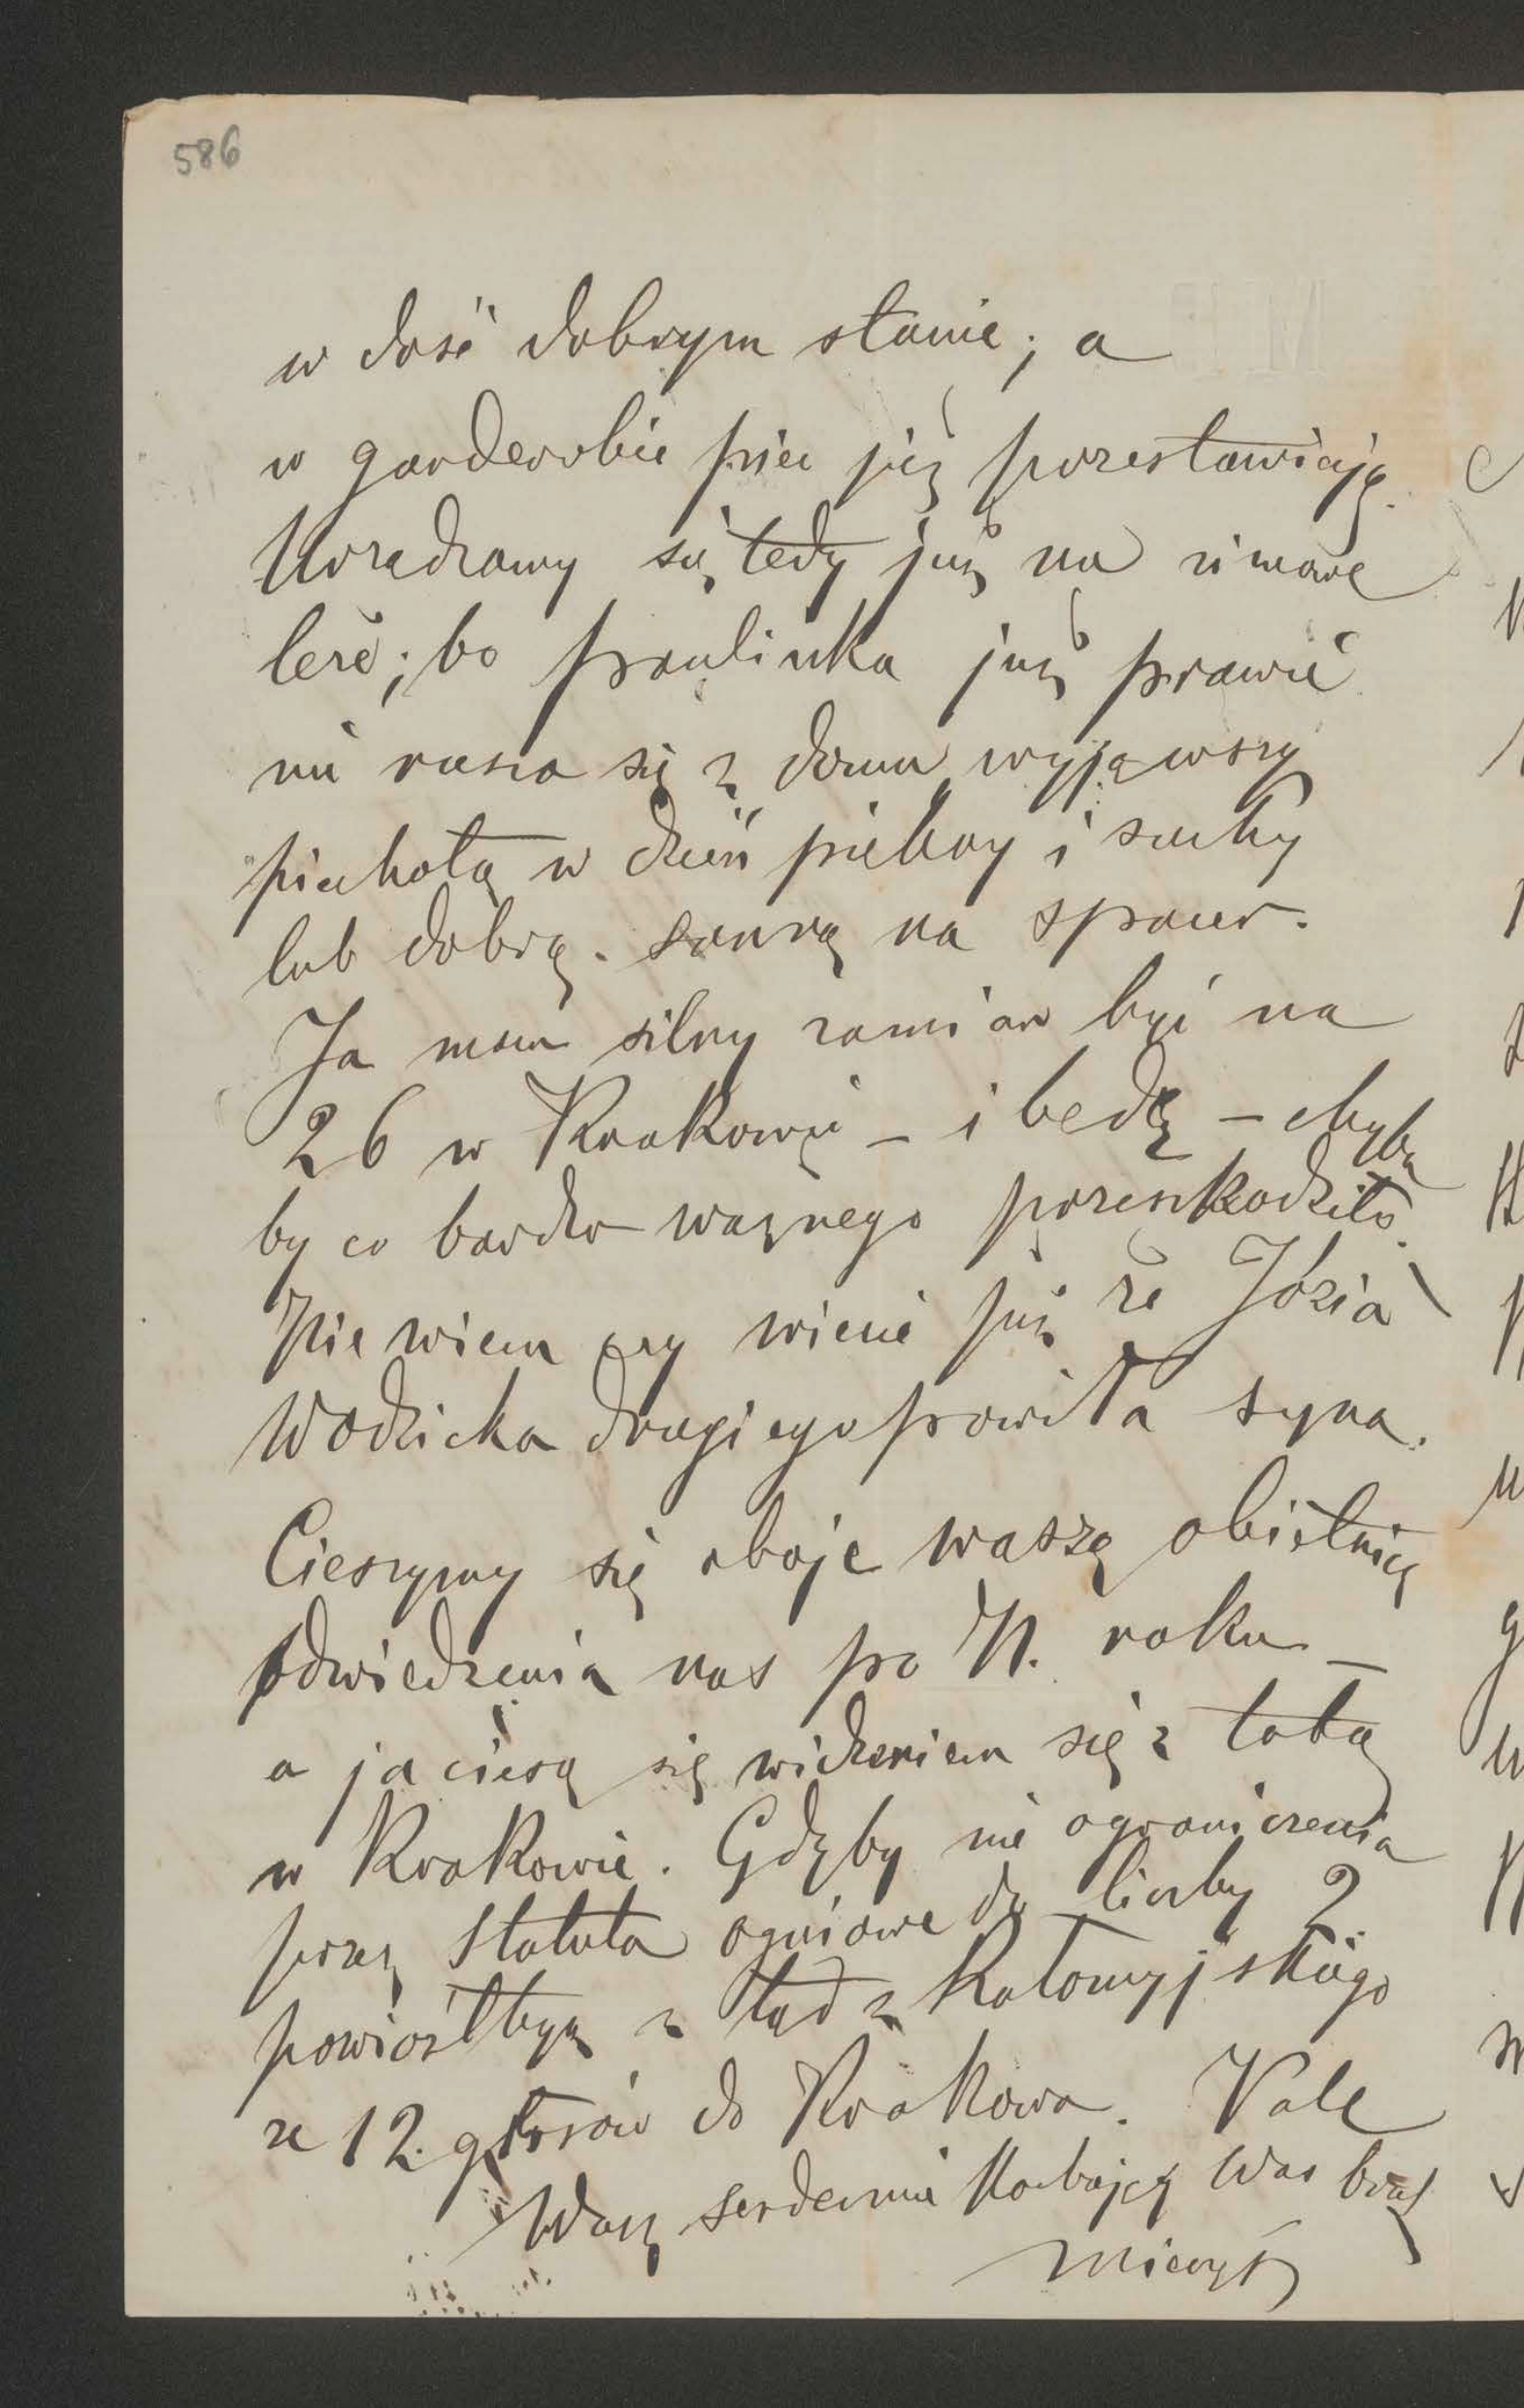 586
w dość dobrym stanie; a
w garderobie piec już przestawiają.
Urządzamy się tedy już na zimowe
leże; bo Paulinka już prawie
nie rusza się z domu wyjąwszy
piechotą w dzień piekny i suchy
lub dobrą sanną na spacer.
Ja mam silny zamiar być na
26 w Krakowie – i będę – chyba
by co bardzo ważnego przeszkodziło.
Nie wiem czy wiecie już że Józia
Wodzicka drugiego powiła syna.
Cieszymy się oboje waszą obietnicą
odwiedzenia nas po N. roku –
a ja cieszę się widzeniem się z tobą
w Krakowie. Gdyby nie ograniczenia
przez Statuta ogniowe do liczby 2.
powiózłbym z tąd z Kołomyjskiego
ze 12. głosów do Krakowa. Vale
Wasz serdecznie Kochający Was brat
Mieczysł